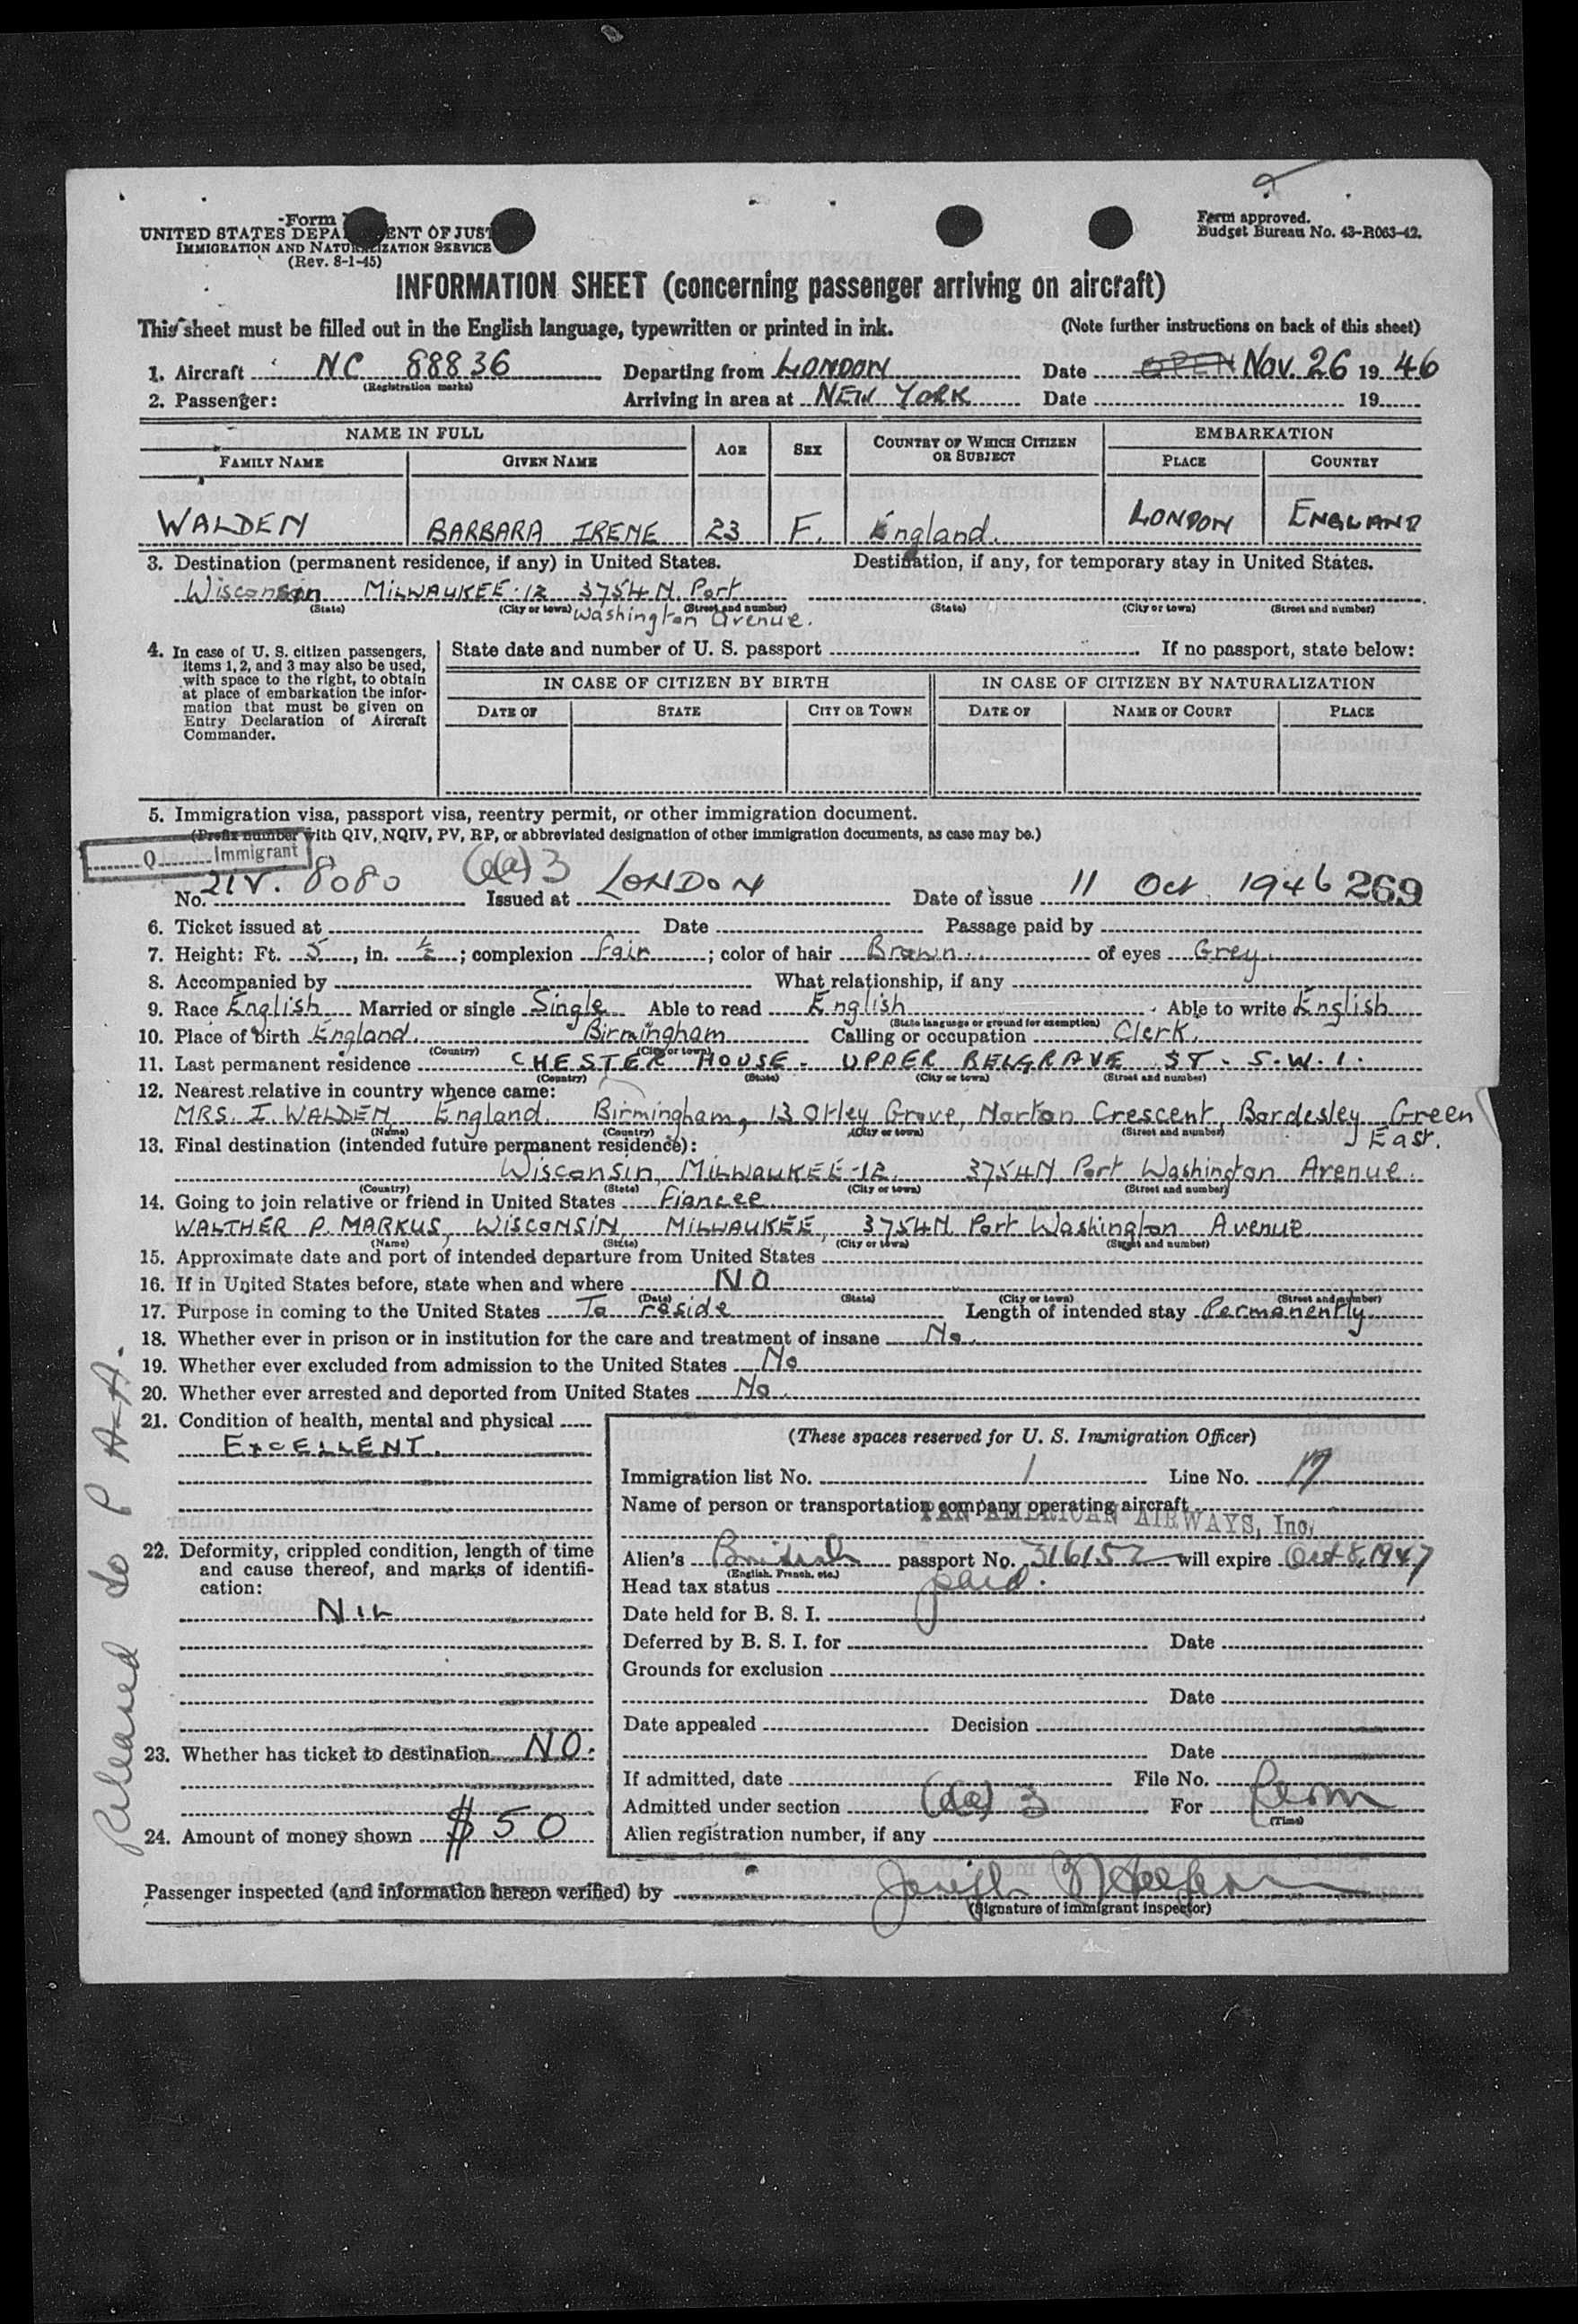 Form
UNITED STATES DEPARTMENT OF JUST
IMMIGRATION AND NATURALIZATION SERVICE
(Rev. 8-1-45)
Form approved.
Budget Bureau No. 43-R063-42.
INFORMATION SHEET (concerning passenger arriving on aircraft)
This sheet must be filled out in the English language, typewritten or printed in ink. (Note further instructions on back of this sheet)
1. Aircraft NC 88836 Departing from LONDON Date OPEN Nov. 26 19 46
(Registration marks)
2. Passenger: Arriving in area at NEW YORK Date 19
NAME IN FULL AGE SEX COUNTRY OF WHICH CITIZEN OR SUBJECT EMBARKATION
FAMILY NAME GIVEN NAME PLACE COUNTRY
WALDEN BARBARA IRENE 23 F. England. LONDON ENGLAND
3. Destination (permanent residence, if any) in United States. Destination, if any, for temporary stay in United States.
Wisconsin MILWAUKEE-12 3754 N. Port
(State) (City or town) (Street and number) (State) (City or town) (Street and number)
Washington Avenue.
4. In case of U. S. citizen passengers, items 1, 2, and 3 may also be used, with space to the right, to obtain at place of embarkation the information that must be given on Entry Declaration of Aircraft Commander.
State date and number of U. S. passport If no passport, state below:
IN CASE OF CITIZEN BY BIRTH IN CASE OF CITIZEN BY NATURALIZATION
DATE OF STATE CITY OR TOWN DATE OF NAME OF COURT PLACE
5. Immigration visa, passport visa, reentry permit, or other immigration document.
(Prefix number with QIV, NQIV, PV, RP, or abbreviated designation of other immigration documents, as case may be.)
Q Immigrant
No. 21V. 8080 (6(a)3 Issued at LONDON Date of issue 11 Oct 1946 269
6. Ticket issued at Date Passage paid by
7. Height: Ft. 5, in. ½; complexion Fair; color of hair Brown. of eyes Grey.
8. Accompanied by What relationship, if any
9. Race English Married or single Single Able to read English Able to write English
(State language or ground for exemption)
10. Place of birth England. Birmingham Calling or occupation Clerk.
(Country) (City or town)
11. Last permanent residence CHESTER HOUSE - UPPER BELGRAVE ST - S.W.1.
(Country) (State) (City or town) (Street and number)
12. Nearest relative in country whence came:
MRS. I. WALDEN, England. Birmingham, 13 Otley Grove, Norton Crescent, Bordesley Green East.
(Name) (Country) (City or town) (Street and number)
13. Final destination (intended future permanent residence):
Wisconsin, MILWAUKEE-12. 3754 N Port Washington Avenue.
(Country) (State) (City or town) (Street and number)
14. Going to join relative or friend in United States Fiancee
WALTHER P. MARKUS, WISCONSIN MILWAUKEE, 3754 N Port Washington Avenue.
(Name) (State) (City or town) (Street and number)
15. Approximate date and port of intended departure from United States
16. If in United States before, state when and where NO
(Date) (State) (City or town) (Street and number)
17. Purpose in coming to the United States To reside Length of intended stay Permanently.
18. Whether ever in prison or in institution for the care and treatment of insane No.
19. Whether ever excluded from admission to the United States No
20. Whether ever arrested and deported from United States No.
21. Condition of health, mental and physical
EXCELLENT.
22. Deformity, crippled condition, length of time and cause thereof, and marks of identification:
NIL
23. Whether has ticket to destination NO.
24. Amount of money shown $50
Released to P A-A.
(These spaces reserved for U. S. Immigration Officer)
Immigration list No. 1 Line No. 17
Name of person or transportation company operating aircraft
PAN AMERICAN AIRWAYS, Inc.
Alien's British passport No. 316152 will expire Oct 8, 1947
(English, French, etc.)
Head tax status paid.
Date held for B. S. I.
Deferred by B. S. I. for Date
Grounds for exclusion
Date
Date appealed Decision
Date
If admitted, date File No.
Admitted under section (6(a) 3 For Perm
(Time)
Alien registration number, if any
Passenger inspected (and information hereon verified) by Joseph
(Signature of immigrant inspector)